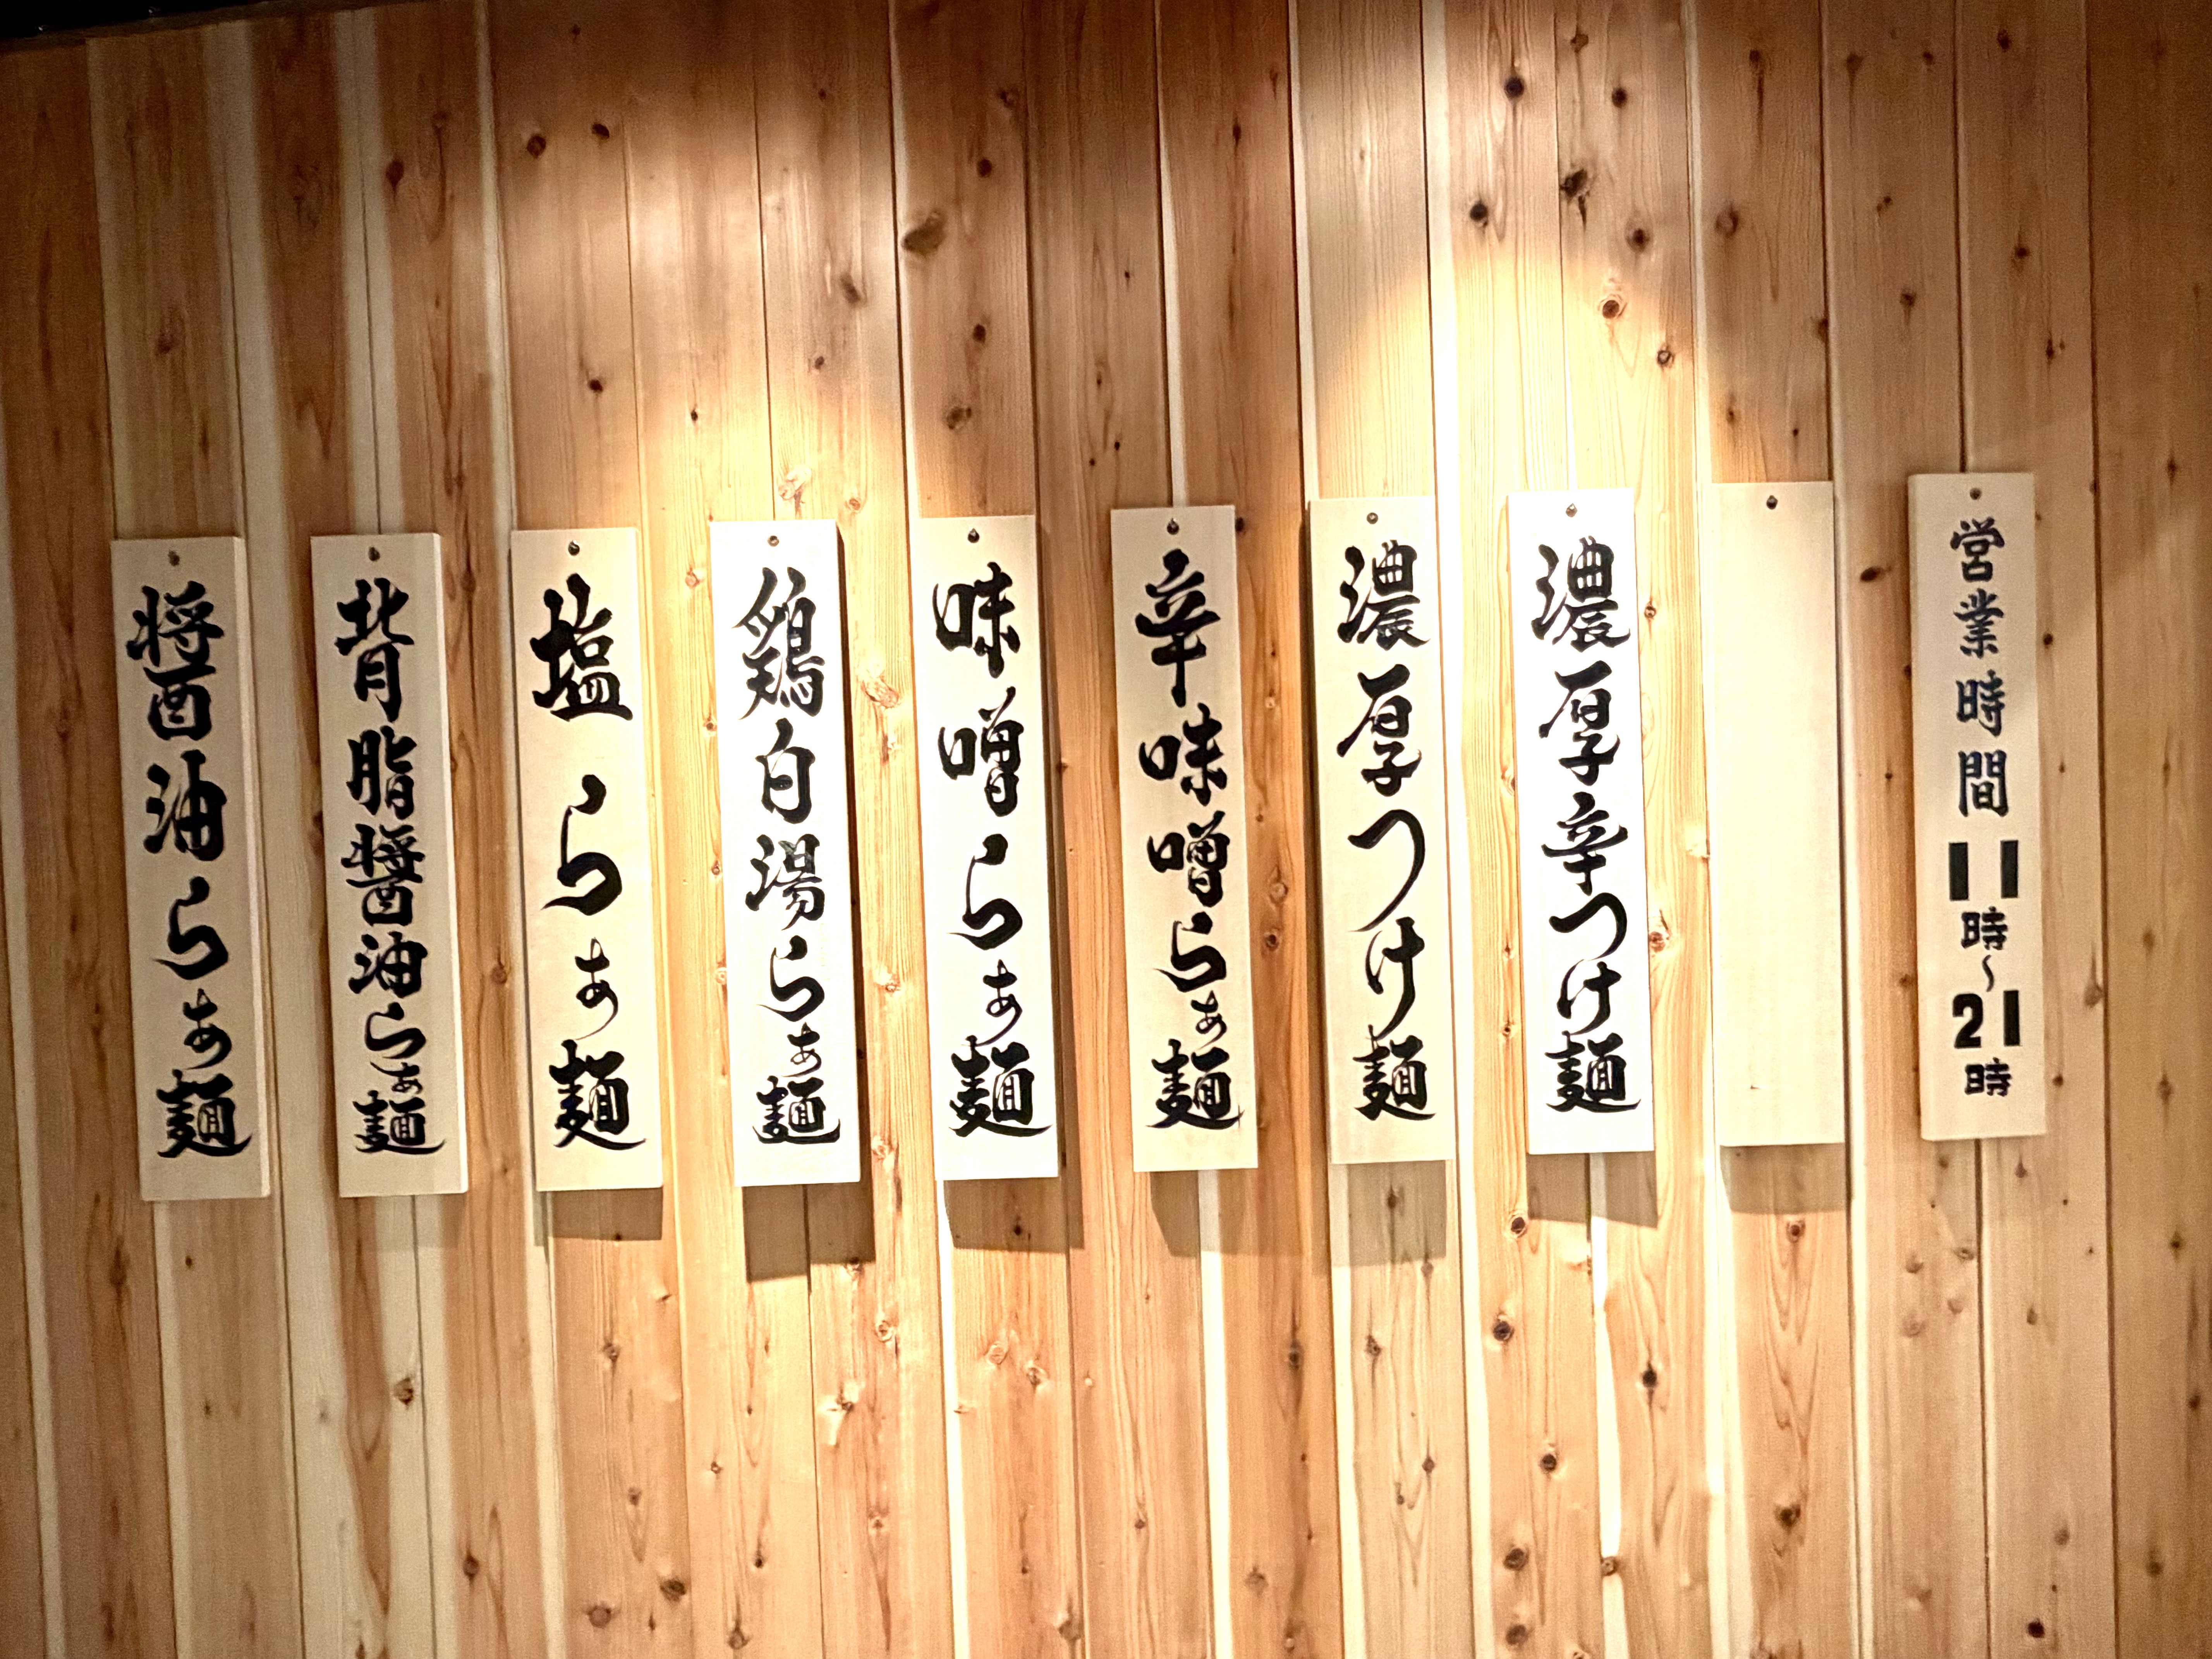 醤油らぁ麺
背脂醤油らぁ麺
塩らぁ麺
鶏白湯らぁ麺
味噌らぁ麺
辛味噌らぁ麺
濃厚つけ麺
濃厚辛つけ麺
営業時間11時〜21時